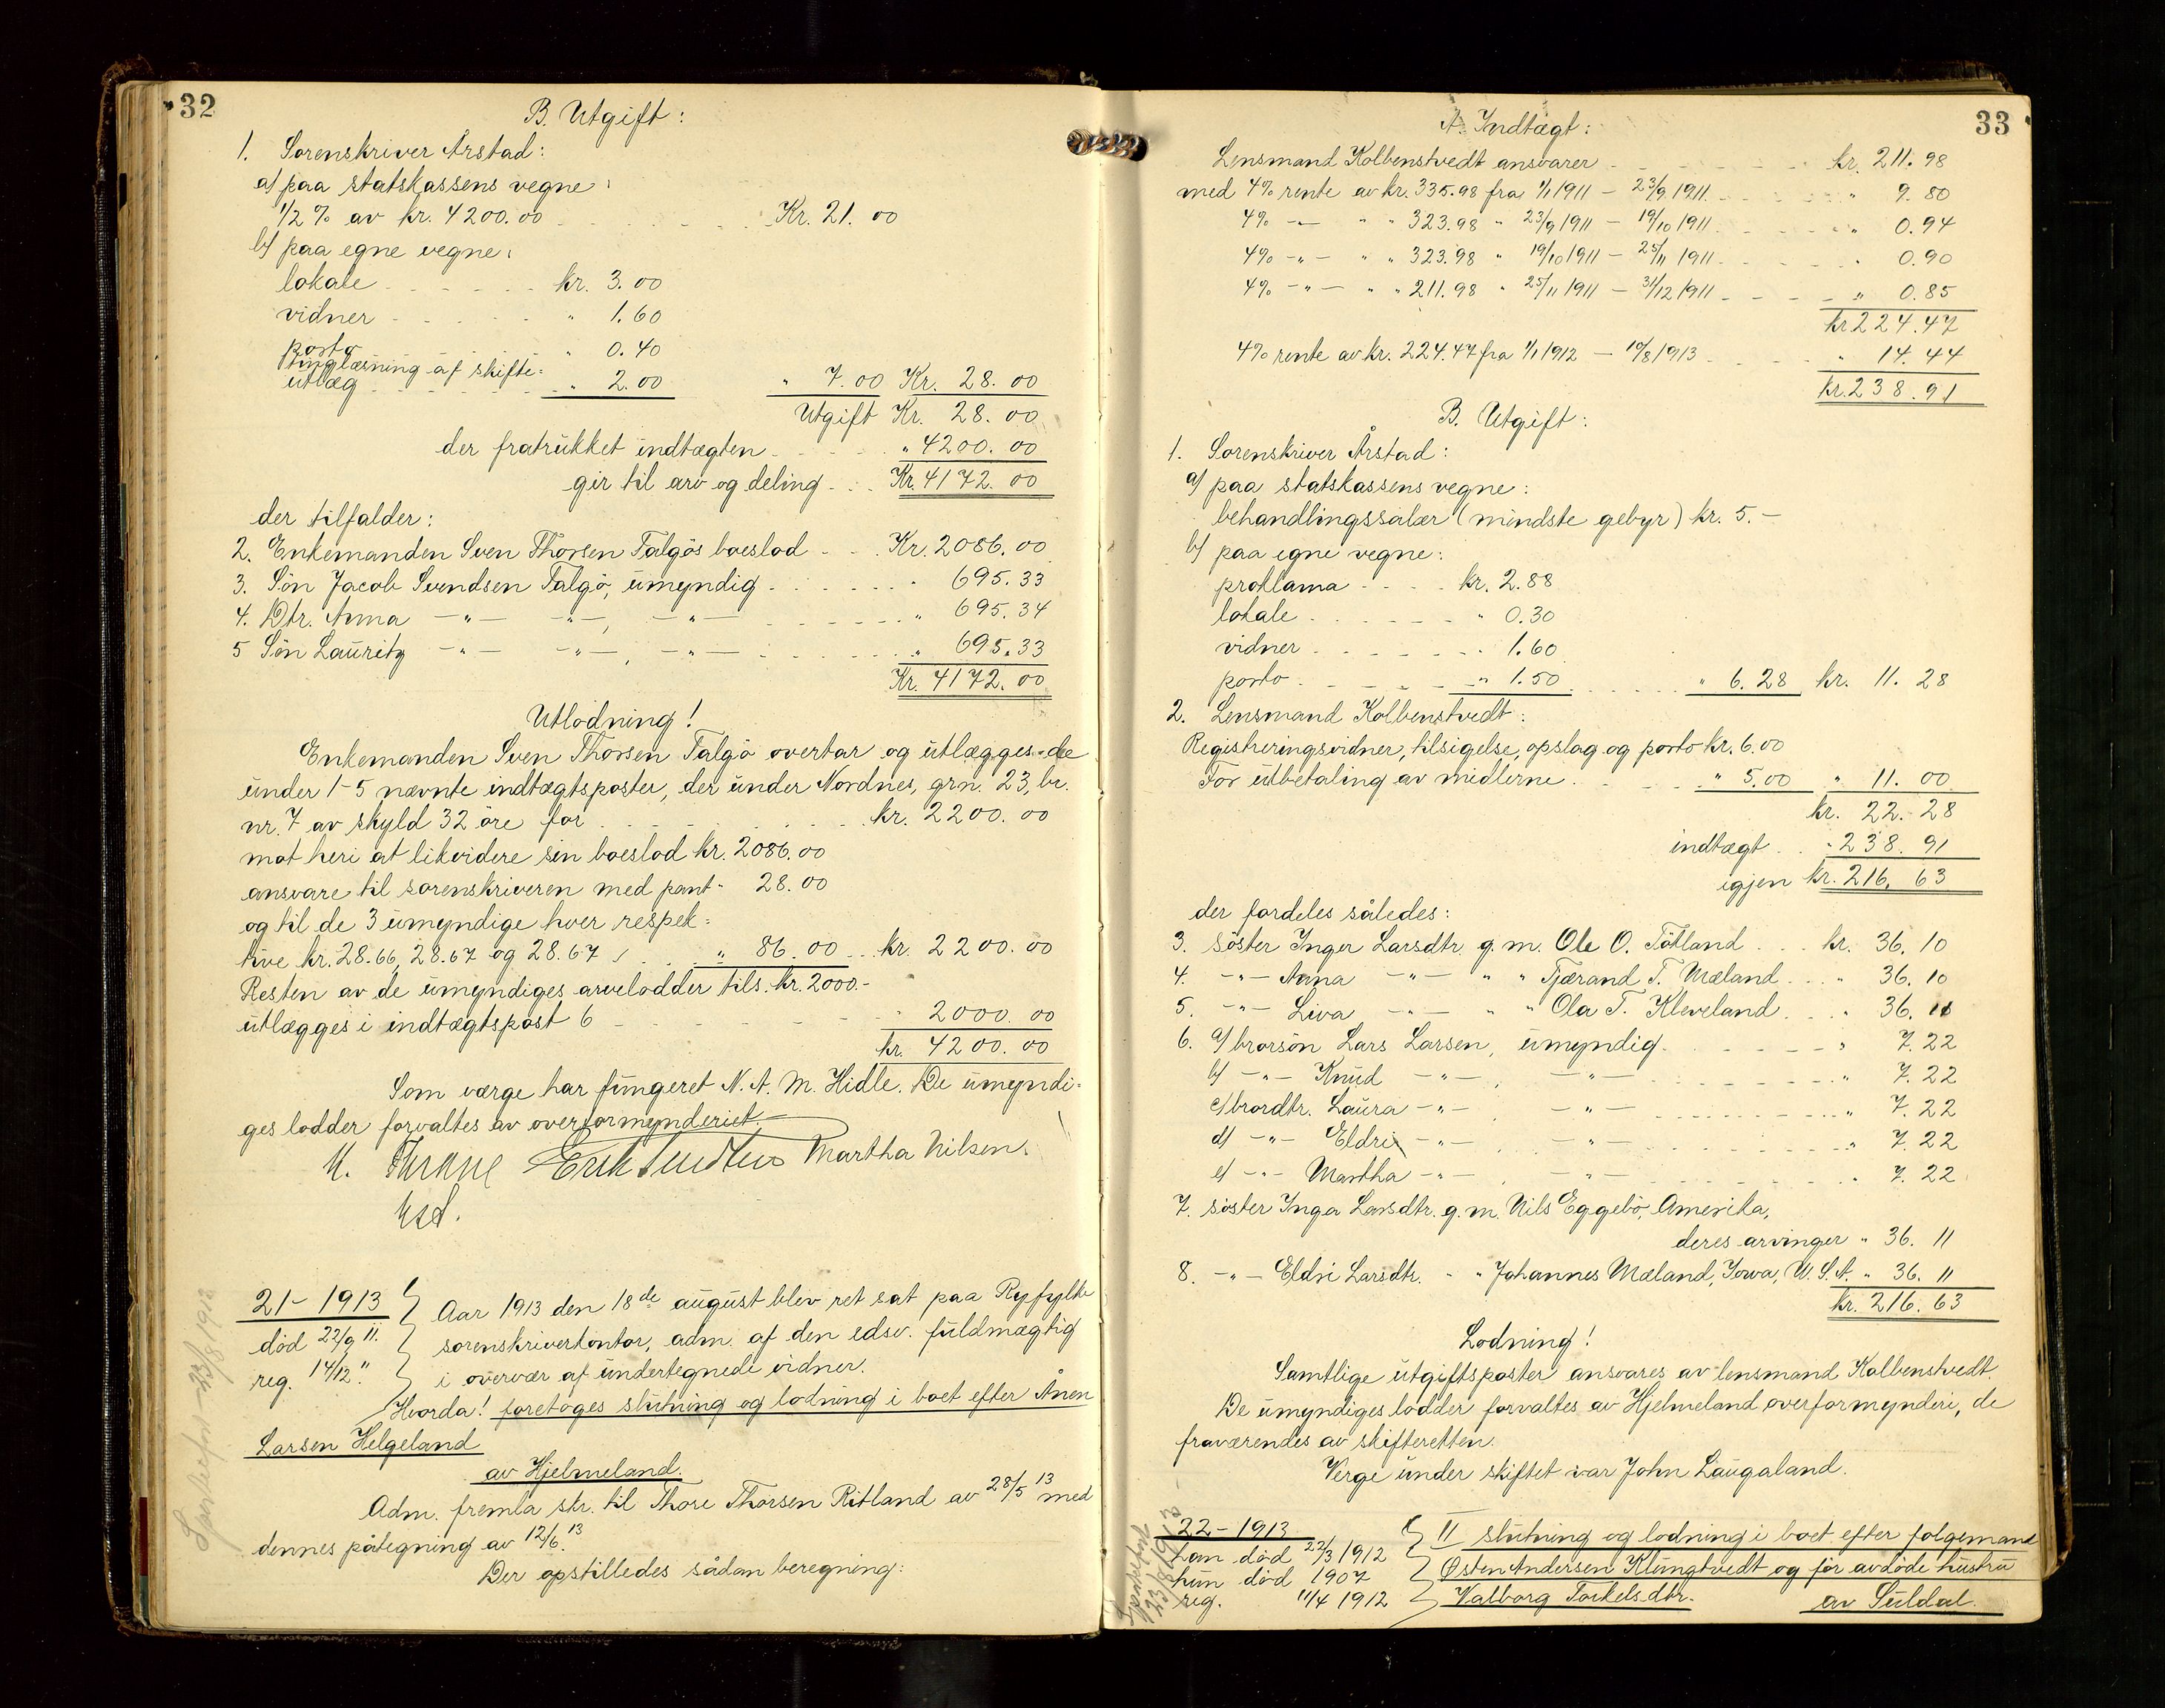 32
B. Utgift:
1. Sorenskriver Årstad:
a) paa statskassens vegne:
1/2 % av kr. 4200.00 Kr. 21. 00
b) paa egne vegne:
lokale kr. 3.00
vidner " 1.60
porto " 0.40
tinglæsning af skifte=
utlæg " 2.00 " 7.00 Kr. 28. 00
Utgift Kr. 28. 00
der fratrukket indtægten " 4200. 00
gir til arv og deling Kr. 4172. 00
der tilfalder:
2. Enkemanden Sven Thorsen Talgös boeslod Kr. 2086.00
3. Sön Jacob Svendsen Talgö, umyndig " 695.33
4. Dtr. Anna -"- -"-, -"- " 695.34
5 Sön Lauritz -"- -"-, -"- " 695.33
Kr. 4172.00
Utlodning!
Enkemanden Sven Thorsen Talgö overtar og utlægges de
under 1-5 nævnte indtægtsposter, der under Nordnes, grn. 23, br.
nr. 7 av skyld 32 öre for kr. 2200. 00
mot heri at likvidere sin boeslod kr. 2086.00
ansvare til sorenskriveren med pant " 28.00
og til de 3 umyndige hver respek=
tive kr. 28.66, 28.67 og 28.67 " 86.00 kr. 2200.00
Resten av de umyndiges arvelodder tils. kr. 2000.-
utlægges i indtægtspost 6 " 2000.00
kr. 4200.00
Som værge har fungeret N. A. M. Hidle. De umyndi=
ges lodder forvaltes av overformynderiet.
Martha Nilsen.
21 - 1913
död 22/9 11.
reg. 14/12 "
Aar 1913 den 18de august blev ret sat paa Ryfylke
sorenskriverkontor, adm. af den edsv. fuldmægtig
i overvær af undertegnede vidner.
Hvorda! foretoges slutning og lodning i boet efter Ånen
Larsen Helgeland
av Hjelmeland.
Adm. fremla skr. til Thore Thorsen Ritland av 28/5 13 med
dennes påtegning av 12/6 13.
Der opstilledes sådan beregning:
23/8 1913
33
A. Indtægt:
Lensmand Kolbenstvedt ansvarer kr. 211. 98
med 4% rente av kr. 335.98 fra 1/1 1911 - 23/9 1911 " 9. 80
4% -"- " " 323.98 " 23/9 1911 - 19/10 1911 " 0.94
4% -"- " " 323.98 " 19/10 1911 - 25/11 1911 " 0.90
4% -"- " " 211.98 " 25/11 1911 - 31/12 1911 " 0.85
kr 224.47
4% rente av kr. 224.47 fra 1/1 1912 - 10/8 1913 " 14.44
kr. 238.91
B. Utgift:
1. Sorenskriver Årstad:
a) paa statskassens vegne:
behandlingssalær (mindste gebyr) kr. 5.-
b) paa egne vegne:
proklama kr. 2.88
lokale " 0.30
vidner " 1.60
porto " 1.50 " 6.28 kr. 11. 28
2. Lensmand Kolbenstvedt:
Registreringsvidner, tilsigelse, opslag og porto kr. 6.00
For utbetaling av midlerne " 5.00 " 11. 00
kr. 22.28
indtægt " 238. 91
igjen kr. 216. 63
der fordeles således:
3. söster Inger Larsdtr. g. m. Ole O. Tötland kr. 36. 10
4. -"- Anna -"- " " Tjærand T. Mæland " 36. 10
5. -"- Liva -"- " " Ola T. Kleveland " 36. 11
6. a) brorsön Lars Larsen, umyndig " 7.22
b) -"- Knud -"-, -"- " 7.22
c) brordtr. Laura -"-, -"- " 7.22
d) -"- Eldri -"-, -"- " 7.22
e) -"- Martha -"-, -"- " 7.22
7. söster Inga Larsdtr. g. m. Nils Eggebö, Amerika,
deres arvinger " 36. 11
8. -"- Eldri Larsdtr. " " Johannes Mæland, Iowa, U. S. A. " 36. 11
kr. 216. 63
Lodning!
Samtlige utgiftsposter ansvares av lensmand Kolbenstvedt.
De umyndiges lodder forvaltes av Hjelmeland overformynderi, de
fraværendes av skifteretten.
Verge under skiftet var John Laugaland.
22 - 1913
han död 22/3 1912
hun död 1907
reg. 11/4 1912
II slutning og lodning i boet efter folgemand
Østen Andersen Klungtvedt og för avdöde hustru
Valborg Torkelsdtr. av Suldal.
23/8 1913